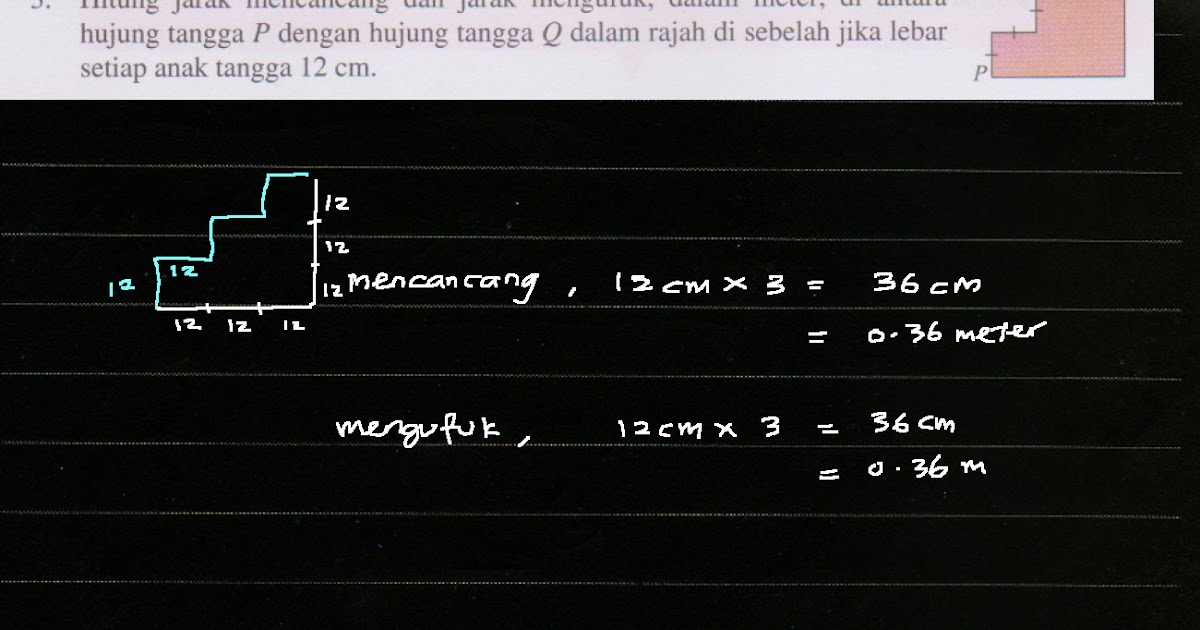 3. Hitung jarak mencancang dan jarak mengufuk, dalam meter, di antara
hujung tangga P dengan hujung tangga Q dalam rajah di sebelah jika lebar
setiap anak tangga 12 cm.
P
12
12
12 12
12 mencancang, 12 cm × 3 = 36 cm
12 12 12
= 0.36 meter
mengufuk, 12 cm × 3 = 36 cm
= 0.36 m